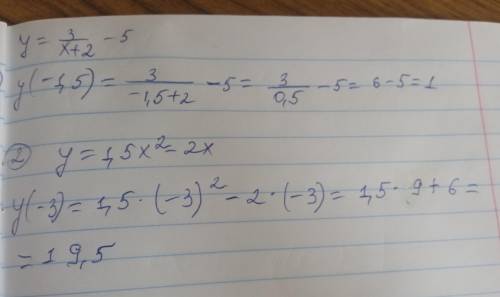 y = 3/(x+2) - 5
y(-1,5) = 3/(-1,5+2) - 5 = 3/0,5 - 5 = 6-5=1
② y = 1,5x² = 2x
y(-3) = 1,5 · (-3)² - 2 · (-3) = 1,5 · 9 + 6 =
= 19,5